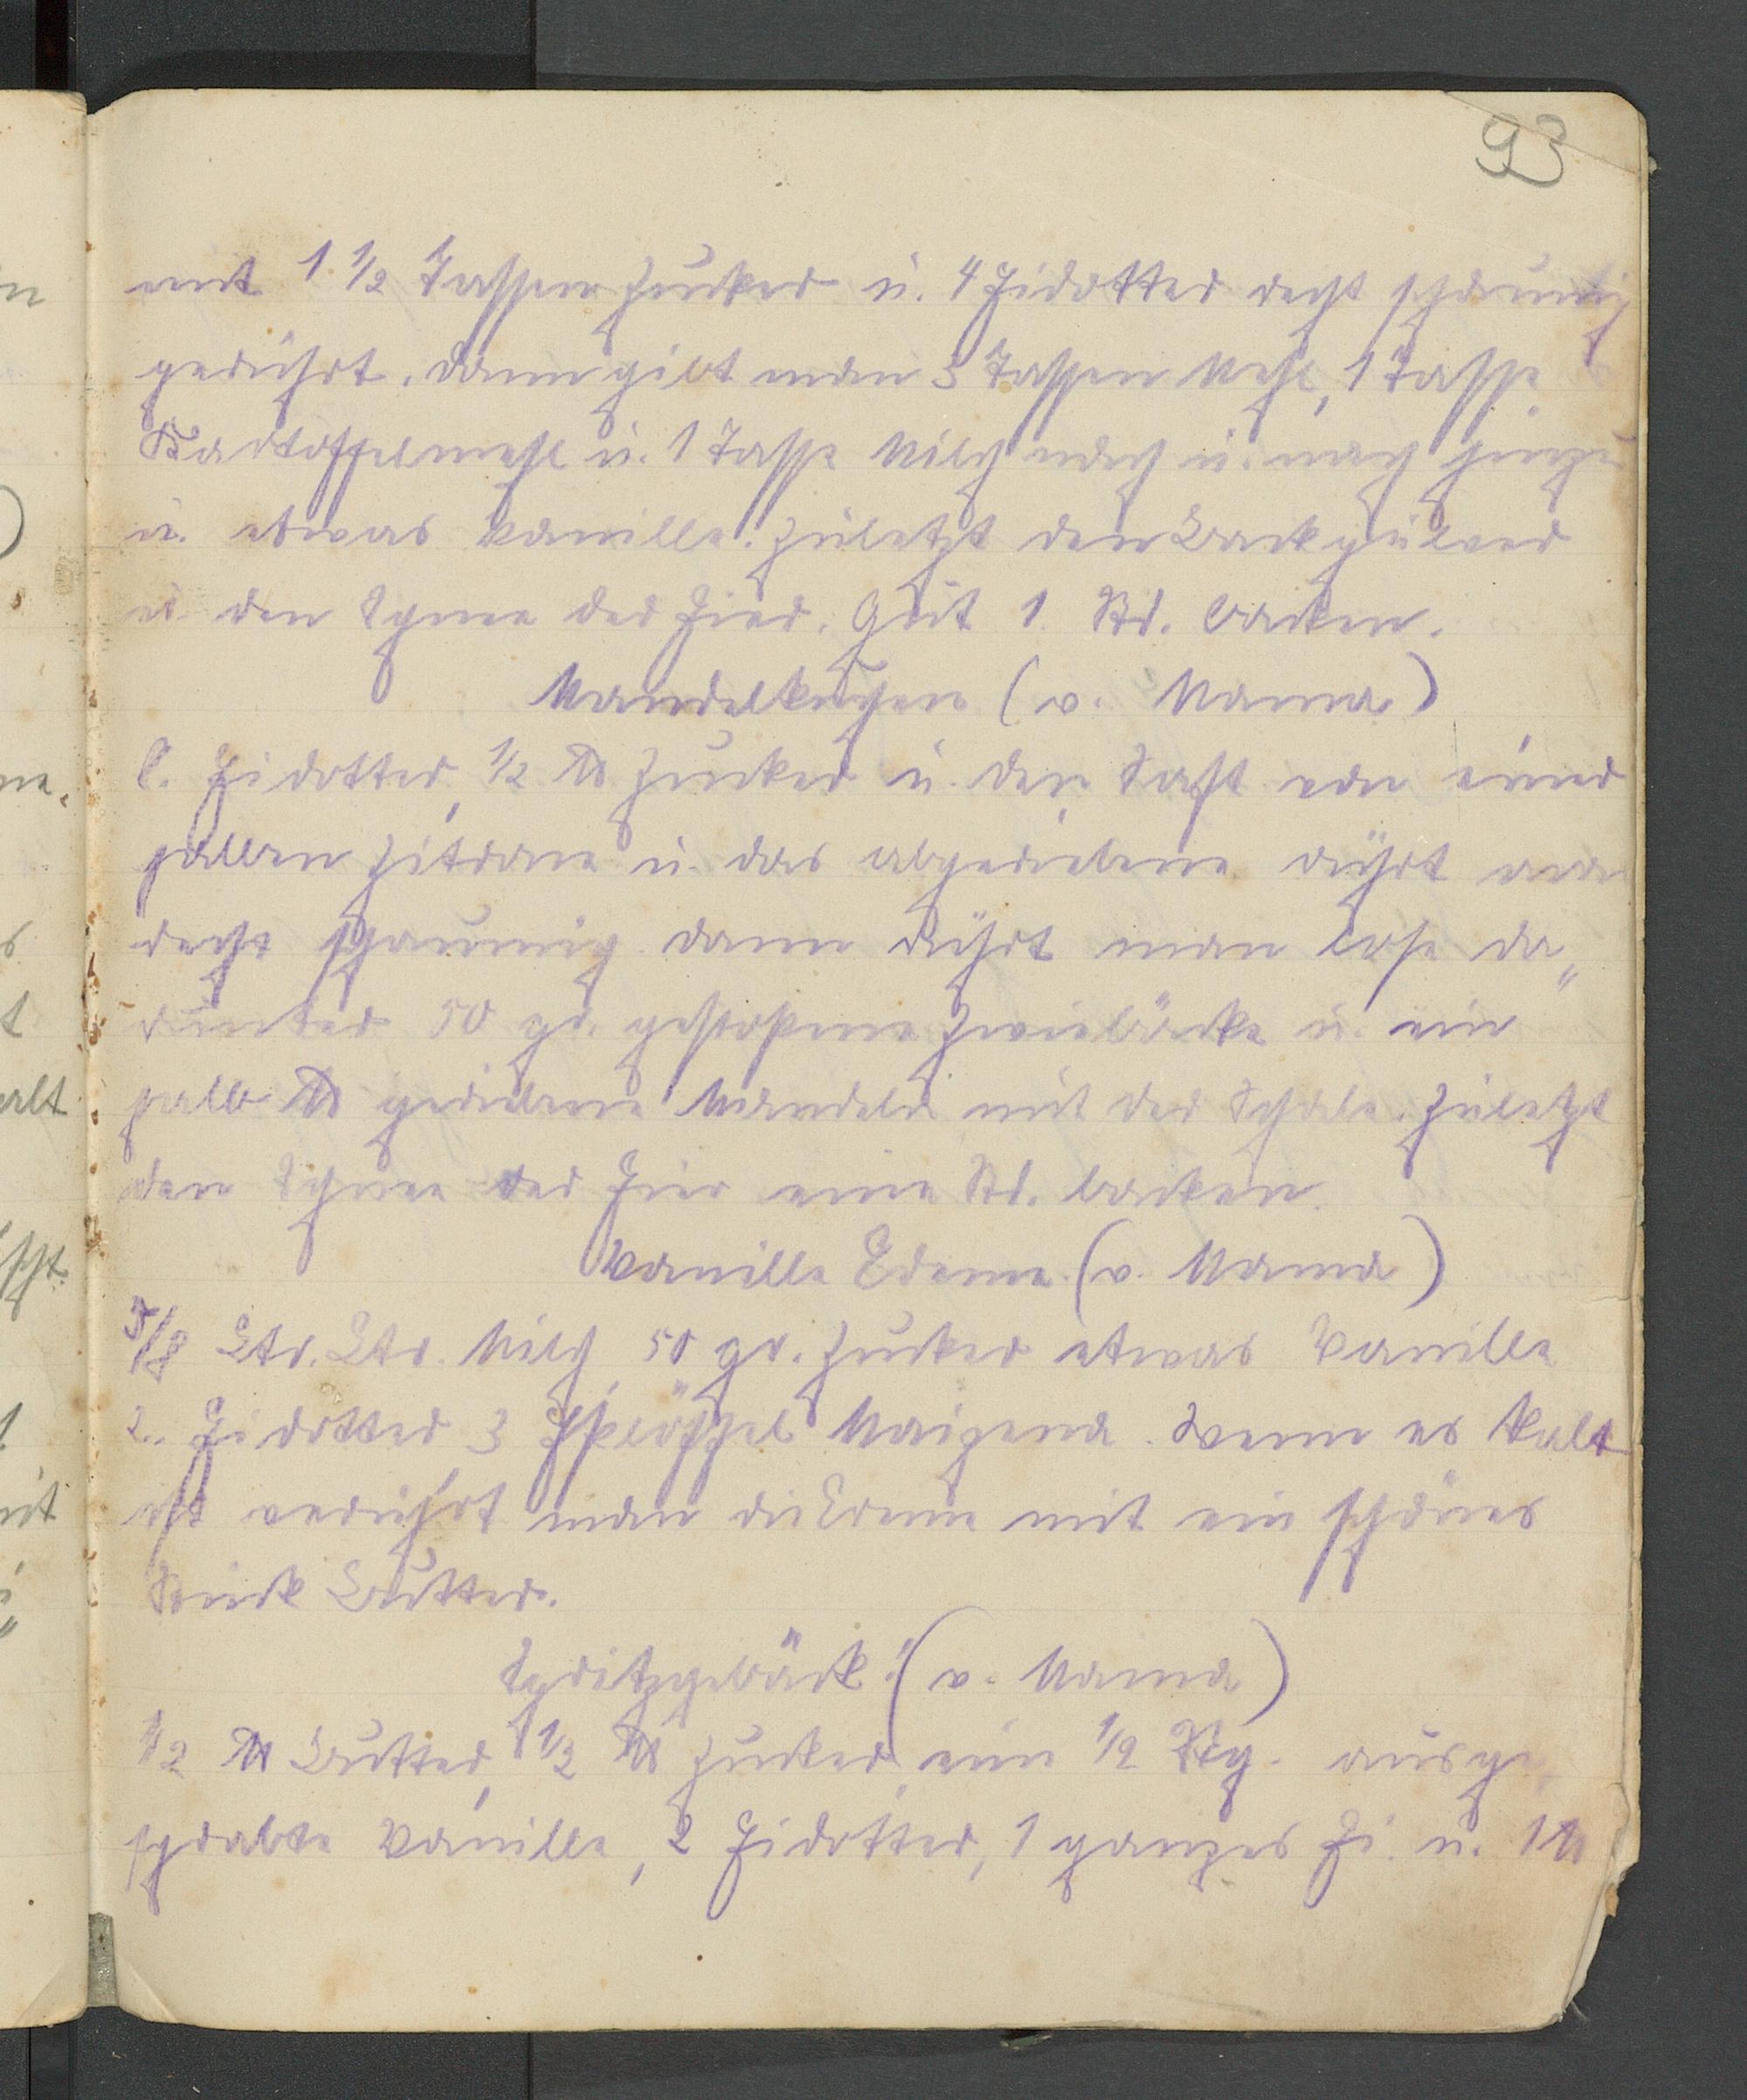 93
mit 1 1/2 Tassen Zucker u. 4 Eidotter recht schaumig
gerührt. Dann gibt man 3 Tassen Mehl, 1 Tasse
Kartoffelmehl u. 1 Tasse Milch nach u. nach hinzu
u. etwas Vanille. Zuletzt den Backpulver
u. den Schnee der Eier. Gut 1 Std. backen.
Mandelkuchen (v. Mama)
8. Eidotter, 1/2 ℔ Zucker u. den Saft von einer
halben Zitrone u. das abgeriebene rührt man
recht schaumig dann rührt man lose da„
runter 50 gr. gestoßene Zwiebäcke u. ein
halb ℔ geriebene Mandeln mit der Schale. Zuletzt
den Schnee der Eier eine Std. backen.
Vanille Creme (v. Mama)
3/8 Ltr. Ltr. Milch, 50 gr. Zucker etwas Vanille
2. Eidotter, 3 Eßlöffel Maizena. Wenn es kalt
ist verrührt man die Creme mit ein schönes
Stück Butter.
Spritzgebäck" (v. Mama)
1/2 ℔ Butter, 1/2 ℔ Zucker, eine 1/2 Stg. ausge„
schrabte Vanille, 2 Eidotter, 1 ganzes Ei. u. 1 ℔